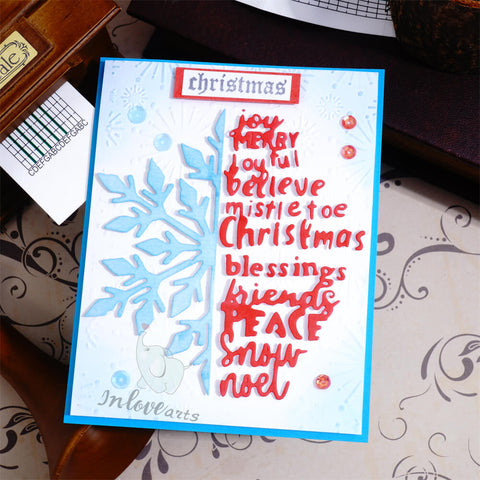 christmas
joy
MERRY
joyful
believe
mistletoe
Christmas
blessings
friends
PEACE
snow
noel
Inlovearts
CDEFGABCDEFGABC